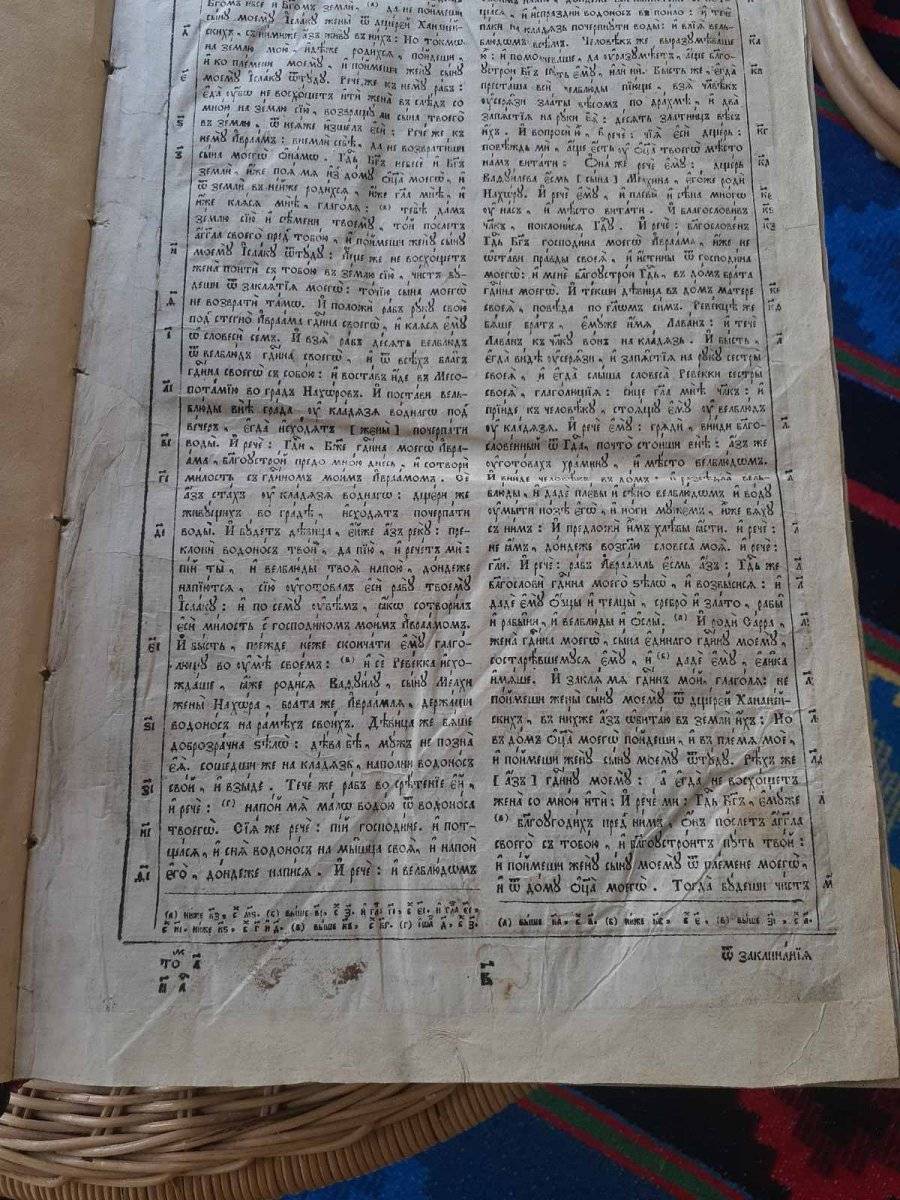 Бг҃омъ нб҃се и҆ Бг҃омъ земли, (а) да не поймеши
сы́ну моемꙋ̀ І҆саа́кꙋ жены̀ ѿ дще́рей Ханане́й-
скихъ, съ ни́миже а҆́зъ живꙋ̀ въ ни́хъ: Но то́кмѡ
на зе́млю мою̀, и҆дѣ́же роди́хсѧ, по́йдеши,
и҆ ко пле́мени моемꙋ̀, и҆ по́ймеши женꙋ̀ сы́нꙋ
моемꙋ̀ І҆саа́кꙋ ѿтꙋ́дꙋ. Рече́ же къ немꙋ̀ ра́бъ:
є҆да̀ ᲂу҆́бѡ не восхо́щетъ и҆тѝ жена̀ въ слѣ́дъ со
мно́ю на зе́млю сїю̀, возвращꙋ́ ли сы́на твоего̀
въ зе́млю, ѿ неѧ́же и҆зше́лъ є҆сѝ: Рече́ же къ
немꙋ̀ А҆враа́мъ: внемлѝ себѣ̀, да не возврати́ши
сы́на моегѡ̀ ѻ҆на́мѡ. Гд҇ь Бг҃ъ небесѐ и҆ Бг҃ъ
землѝ, и҆́же поѧ́ мѧ и҆з̾ до́мꙋ ѻ҆ц҃а̀ моегѡ̀, и҆
ѿ землѝ въ не́йже роди́хсѧ, и҆́же гл҃а мнѣ̀, и҆
и҆́же клѧ́сѧ мнѣ̀, глаго́лѧ: (в) тебѣ̀ да́мъ
зе́млю сїю̀ и҆ сѣ́мени твоемꙋ̀, то́й по́слетъ
а҆́гг҃ла своего̀ пред̾ тобо́ю, и҆ по́ймеши женꙋ̀ сы́нꙋ
моемꙋ̀ І҆саа́кꙋ ѿтꙋ́дꙋ: А҆́ще же не восхо́щетъ
жена̀ поитѝ съ тобо́ю въ зе́млю сїю̀, чи́стъ бꙋ́-
деши ѿ заклѧ́тїѧ моегѡ̀: то́чїю сы́на моегѡ̀
не возвратѝ та́мѡ. И҆ положѝ ра́бъ рꙋ́кꙋ свою̀
под̾ стегно̀ А҆враа́ма гд҇и́на своегѡ̀, и҆ клѧ́сѧ є҆мꙋ̀
ѡ҆ словесѝ се́мъ. И҆ взѧ̀ ра́бъ де́сѧть велблю́дъ
ѿ велблю́дъ гд҇и́на своегѡ̀, и҆ ѿ всѣ́хъ бла́гъ
гд҇и́на своегѡ̀ съ собо́ю: и҆ воста́въ и҆́де въ Месо-
пота́мїю во гра́дъ Нахѡ́ровъ. И҆ поста́ви вель-
блю́ды внѣ̀ гра́да ᲂу҆ кла́дѧзѧ во́днагѡ под̾
ве́черъ, є҆гда̀ и҆схо́дѧтъ [жены̀] почерпа́ти
воды̀. И҆ речѐ: Гд҇и, Бж҃е гд҇и́на моегѡ̀ А҆вра-
а́ма, бл҃гоꙋстро́й предо мно́ю дне́сь, и҆ сотворѝ
ми́лость съ гд҇и́номъ мои́мъ А҆враа́момъ. Сѐ
а҆́зъ ста́хъ ᲂу҆ кла́дѧзѧ во́днагѡ: дще́ри же
живꙋ́щихъ во гра́дѣ, и҆схо́дѧтъ почерпа́ти
воды̀. И҆ бꙋ́детъ дѣви́ца, є҆́йже а҆́зъ рекꙋ̀: пре-
клонѝ водоно́съ тво́й, да пїю̀, и҆ рече́тъ мѝ:
пі́й ты̀, и҆ велблю́ды твоѧ̀ напою̀, до́ндеже
напїю́тсѧ, сїю̀ ᲂу҆гото́валъ є҆сѝ рабꙋ̀ твоемꙋ̀
І҆саа́кꙋ: и҆ по семꙋ̀ ᲂу҆вѣ́мъ, ꙗ҆́кѡ сотвори́лъ
є҆сѝ ми́лость с̾ господи́номъ мои́мъ А҆враа́момъ.
И҆ бы́сть, пре́жде не́же сконча́ти є҆мꙋ̀ глаго́-
лющꙋ во ᲂу҆мѣ̀ свое́мъ: (в) и҆ сѐ Реве́кка и҆схо-
жда́ше, ꙗ҆́же роди́сѧ Ваѳꙋи́лꙋ, сы́нꙋ Ме́лхи
жены̀ Нахѡ́ра, бра́та же А҆враа́млѧ, держа́щи
водоно́съ на ра́мѣхъ свои́хъ. Дѣви́ца же бѧ́ше
доброзра́чна ѕѣлѡ̀: дѣ́ва бѣ̀, мꙋ́жъ не позна̀
є҆ѧ̀. соше́дши же на кла́дѧзь, напо́лни водоно́съ
сво́й, и҆ взы́де. Тече́ же ра́бъ во срѣ́тенїе є҆́й,
и҆ речѐ: (г) напо́й мѧ ма́лѡ водо́ю ѿ водоно́са
твоегѡ̀. Сїѧ́ же речѐ: пі́й господи́не. и҆ потща́-
щасѧ, и҆ снѧ̀ водоно́съ на мы́шца своѧ̀, и҆ напоѝ
є҆го̀, до́ндеже напи́сѧ. И҆ речѐ: и҆ велблю́дѡмъ
щасѧ, и҆ и҆спразднѝ водоно́съ въ пои́ло: и҆ течѐ
па́ки на кла́дѧзь почерпнꙋ́ти воды̀: и҆ влїѧ̀ вель-
блю́дѡмъ всѣ́мъ. Человѣ́къ же выразꙋмѣва́ше
ю҆̀: и҆ помолчева́ше, да ᲂу҆разꙋмѣ́етъ, а҆́ще бл҃го-
ꙋстроѝ Бг҃ъ пꙋ́ть є҆мꙋ̀, и҆лѝ нѝ. Бы́сть же, є҆гда̀
преста́ша всѝ велблю́ды пїю́ще, взѧ̀ чл҃вѣ́къ
ᲂу҆серѧ̑зи зла̑ты вѣ́сомъ по дра́хмѣ, и҆ два̀
запѧ̑стїѧ на рꙋ́ки є҆ѧ̀: де́сѧть зла̑тницъ вѣ́съ
и҆́хъ. И҆ вопросѝ ю҆̀, и҆ речѐ: чїѧ̀ є҆сѝ дще́рь:
повѣ́ждь мѝ, а҆́ще є҆́сть ᲂу҆ ѻ҆ц҃а̀ твоегѡ̀ мѣ́сто
на́мъ вита́ти: Ѻ҆на́ же речѐ є҆мꙋ̀: дще́рь
Ваѳꙋи́лева є҆́смь [сы́на] Ме́лхина, є҆го́же родѝ
Нахѡ́рꙋ. И҆ речѐ є҆мꙋ̀, и҆ пле́вы и҆ сѣ́на мно́гѡ
ᲂу҆ на́съ, и҆ мѣ́сто вита́ти. И҆ благослови́въ
чл҃къ, поклони́сѧ Гд҇ꙋ. И҆ речѐ: благослове́нъ
Гд҇ь Бг҃ъ господи́на моегѡ̀ А҆враа́ма, и҆́же не
ѡ҆ста́ви пра́вды своеѧ̀, и҆ и҆́стины ѿ господи́на
моегѡ̀: и҆ менѐ бл҃гоꙋстроѝ Гд҇ь, въ до́мъ бра́та
гд҇и́на моегѡ̀. И҆ те́кши дѣви́ца въ до́мъ ма́тере
своеѧ̀, повѣ́да по гл҃ѡ́мъ си̑мъ. Реве́кцѣ же
бѧ́ше бра́тъ, є҆мꙋ́же и҆́мѧ Лава́нъ: и҆ течѐ
Лава́нъ къ чл҃кꙋ во́нъ на кла́дѧзь. И҆ бы́сть,
є҆гда̀ ви́дѣ ᲂу҆серѧ̑зи, и҆ запѧ̑стїѧ на рꙋкꙋ̀ сестры̀
своеѧ̀, и҆ є҆гда̀ слы́ша словеса̀ Реве́кки сестры̀
своеѧ̀, глаго́лющїѧ: си́це гл҃а мнѣ̀ чл҃къ: и҆
прїи́де къ человѣ́кꙋ, стоѧ́щꙋ є҆мꙋ̀ ᲂу҆ велблю́дъ
ᲂу҆ кла́дѧзѧ. И҆ речѐ є҆мꙋ̀: грѧдѝ, вни́ди благо-
слове́нный ѿ Гд҇а, почто̀ стои́ши внѣ̀: а҆́зъ же
ᲂу҆гото́вахъ хра́минꙋ, и҆ мѣ́сто велблю́дѡмъ.
И҆ вни́де человѣ́къ въ до́мъ: и҆ разсѣдла̀ вель-
блю́ды, и҆ дадѐ пле́вы и҆ сѣ́но велблю́дѡмъ и҆ во́дꙋ
ᲂу҆мы́ти но́зѣ є҆гѡ̀, и҆ но́ги мꙋжє́мъ, и҆̀же бѧ́хꙋ
съ ни́мъ: И҆ предложѝ и҆̀мъ хлѣ́бы ꙗ҆́сти. и҆ речѐ:
не ꙗ҆́мъ, до́ндеже возгл҃ю словеса̀ моѧ̀. и҆ речѐ:
гл҃и. И҆ речѐ: ра́бъ А҆враа́мль є҆́смь а҆́зъ: Гд҇ь же
бл҃гословѝ гд҇и́на моего̀ ѕѣлѡ̀, и҆ возвы́сисѧ: и҆
дадѐ є҆мꙋ̀ ѻ҆́вцы и҆ телцы̀, сребро̀ и҆ зла́то, рабы̀
и҆ рабы̑ни, и҆ велблю́ды и҆ ѻ҆слы̀. (а) И҆ родѝ Са́рра,
жена̀ гд҇и́на моегѡ̀, сы́на є҆ди́наго гд҇и́нꙋ моемꙋ̀,
состарѣ́вшемꙋсѧ є҆мꙋ̀, и҆ (б) дадѐ є҆мꙋ̀, є҆ли̑ка
и҆мѧ́ше. И҆ заклѧ́ мѧ гд҇и́нъ мо́й, глаго́лѧ: не
по́ймеши жены̀ сы́нꙋ моемꙋ̀ ѿ дще́рей Ханане́й-
скихъ, въ ни́хже а҆́зъ ѡ҆бита́ю въ землѝ и҆́хъ: Но
въ до́мъ ѻ҆ц҃а̀ моегѡ̀ по́йдеши, и҆ въ пле́мѧ моѐ,
и҆ по́ймеши женꙋ̀ сы́нꙋ моемꙋ̀ ѿтꙋ́дꙋ. Рѣ́хъ же
[а҆́зъ] гд҇и́нꙋ моемꙋ̀: а҆ є҆гда̀ не восхо́щетъ
жена̀ со мно́ю и҆тѝ: И҆ речѐ мѝ: Гд҇ь Бг҃ъ, є҆мꙋ́же
(в) бл҃гоꙋгоди́хъ пред̾ ни́мъ, ѻ҆́нъ по́слетъ а҆́гг҃ла
своего̀ съ тобо́ю, и҆ бл҃гоꙋстро́итъ пꙋ́ть тво́й:
и҆ по́ймеши женꙋ̀ сы́нꙋ моемꙋ̀ ѿ пле́мене моегѡ̀,
и҆ ѿ до́мꙋ ѻ҆ц҃а̀ моегѡ̀. Тогда̀ бꙋ́деши чи́стъ
ѿ заклина́нїѧ